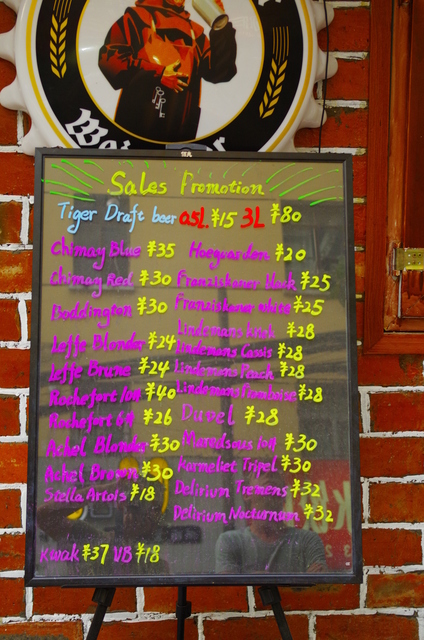 Sales Promotion
Tiger Draft beer 0.5L ¥15 3L ¥80
Chimay Blue ¥35
Chimay Red ¥30
Boddington ¥30
Leffe Blonde ¥24
Leffe Brune ¥24
Rochefort 10# ¥40
Rochefort 6# ¥26
Achel Blonde ¥30
Achel Brown ¥30
Stella Artois ¥18
Hoegaarden ¥20
Franziskaner black ¥25
Franziskaner white ¥25
Lindemans ¥28
Lindemans Cassis ¥28
Lindemans Peach ¥28
Lindemans Framboise ¥28
Duvel ¥28
Maredsous 10# ¥30
Karmeliet Tripel ¥30
Delirium Tremens ¥32
Delirium Nocturnam ¥32
Kwak ¥37 VB ¥18